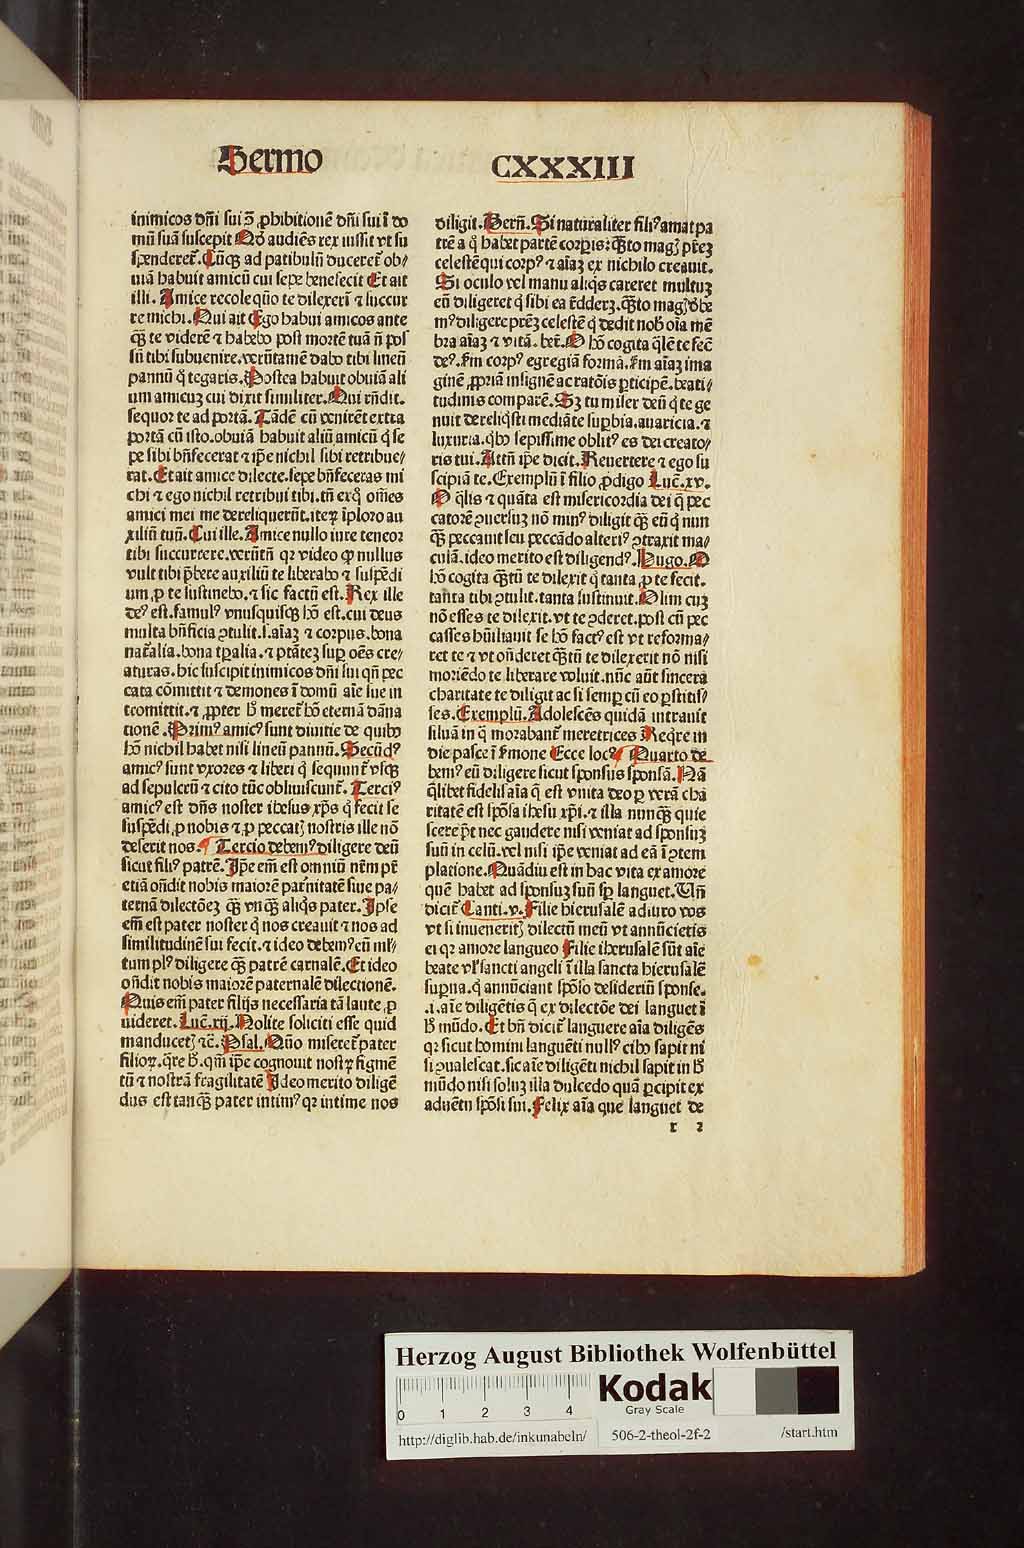 Sermo
CXXXIII
inimicos dñi sui ꝯ̃ ꝓhibitionē dñi sui ĩ do
mũ suã suscepit Qð audiẽs rex iussit vt su
spenderet᷑. Cũqꝫ ad patibulũ duceret᷑ ob⸗
uiã habuit amicũ cui sepe benefecit Et ait
illi. Amice recole qũo te dilexerĩ ⁊ succur
re michi. Qui ait Ego habui amicos ante
qꝫ̃ te viderẽ ⁊ habebo post mortẽ tuã ñ pos
sũ tibi subuenire. verũtamẽ dabo tibi lineũ
pannũ q̇ tegaris. Postea habuit obuiã ali
um amicuꝫ cui dixit similiter. Qui rñdit.
sequor te ad portã. Tãdẽ cũ venirẽt extra
portã cũ isto. obuiã habuit aliũ amicũ q̇ se
pe sibi bñfecerat ⁊ ip̃e nichil sibi retribue⸗
rat. Et ait amice dilecte. sepe bñfeceras mi
chi ⁊ ego nichil retribui tibi. tñ exq̇ oẽs
amici mei me dereliquerũt. iteꝝ ĩploro au
xiliũ tuũ. Cui ille. Amice nullo iure teneor
tibi succurrere. verũtñ qꝛ video ꝙ nullus
vult tibi p̃bere auxiliũ te liberabo ⁊ suspẽdi
um ꝓ te sustinebo. ⁊ sic factũ est. Rex ille
de⁹ est. famul⁹ vnusquisqꝫ hõ est. cui deus
multa bñficia ꝯtulit. s. aĩaꝫ ⁊ corpus. bona
nat᷑alia. bona tp̃alia. ⁊ ptãteꝫ suꝑ oẽs cre⸗
aturas. hic suscipit inimicos dñi sui qñ pec
cata cõmittit ⁊ demones ĩ domũ aĩe sue in
tromittit. ⁊ ꝓpter h̾ meret᷑ hõ eternã dãna
tionẽ. Prim⁹ amic⁹ sunt diuitie de quibꝰ
hõ nichil habet nisi lineũ pannũ. Secũd⁹
amic⁹ sunt vxores ⁊ liberi q̇ sequunt᷑ vsqꝫ
ad sepulcrũ ⁊ cito tũc obliuiscunt᷑. Terci⁹
amic⁹ est dñs noster ihesus xp̃s q̇ fecit se
suspẽdi ꝓ nobis ⁊ ꝓ peccatꝭ nostris ille nõ
deserit nos. ¶ Tercio debem⁹ diligere deũ
sicut fili⁹ patrẽ. Ip̃e em̃ est omniũ nr̃m pr̃
etiã oñdit nobis maiorẽ pat᷑nitatẽ siue pa⸗
ternã dilectõeꝫ qꝫ̃ vnqꝫ̃ aliq̇s pater. Ipse
em̃ est pater noster q̇ nos creauit ⁊ nos ad
similitudinẽ sui fecit. ⁊ ideo debem⁹ eũ ml̃⸗
tum pl⁹ diligere qꝫ̃ patrẽ carnalẽ. Et ideo
oñdit nobis maiorẽ paternalẽ dilectionẽ.
Quis em̃ pater filijs necessaria tã laute ꝓ
uideret. Luc̃. xij. Nolite soliciti esse quid
manducetꝭ ⁊c̃. Psal. Qũo miseret᷑ pater
filioꝝ. q̃re h̾. qm̃ ip̃e cognouit nostꝝ figmẽ
tũ ⁊ nostrã fragilitatẽ Ideo merito diligẽ
dus est tanqꝫ̃ pater intim⁹ qꝛ intime nos
diligit. Berñ. Si naturaliter fili⁹ amat pa
trẽ a q̇ habet partẽ corꝑis: qꝫ̃to magꝭ pr̃eꝫ
celestẽ qui corp⁹ ⁊ aĩaꝫ ex nichilo creauit.
Si oculo vel manu aliq̇s careret multuꝫ
eũ diligeret q̇ sibi ea r̃dderꝫ. qꝫ̃to magꝭ ð̾be
m⁹ diligere pr̃eꝫ celestẽ q̇ dedit nob̾ oĩa mẽ
bra aĩaꝫ ⁊ vitã. ber̃. O hõ cogita q̃lẽ te fec̃
de⁹. s̃m corp⁹ egregiã formã. s̃m aĩaꝫ ima
ginẽ ꝓpriã insignẽ ac rat̃õis ꝑticipẽ. beati⸗
tudinis comparẽ. Sꝫ tu miser deũ q̇ te ge
nuit dereliq̇sti mediãte suꝑbia. auaricia. ⁊
luxuria. qꝰbo sepissime oblit⁹ es dei creato⸗
ris tui. Attñ ip̃e dicit. Reuertere ⁊ ego su
scipiã te. Exemplũ ĩ filio ꝓdigo Luc̃. xv.
O q̃lis ⁊ quãta est misericordia dei q̇ pec
catorẽ ꝯuersuꝫ nõ min⁹ diligit qꝫ̃ eũ q̇ nun
qꝫ̃ peccauit seu peccãdo alteri⁹ ꝯtraxit ma⸗
culã. ideo merito est diligend⁹. Hugo. O
hõ cogita qꝫ̃tũ te dilexit q̇ tanta ꝓ te fecit.
tanta tibi ꝯtulit. tanta sustinuit. Olim cuꝫ
nõ esses te dilexit. vt te ꝯderet. post cũ pec
casses hũiliauit se hõ fact⁹ est vt reforma⸗
ret te ⁊ vt oñderet qꝫ̃tũ te dilexerit nõ nisi
moriẽdo te liberare voluit. nũc aũt sincera
charitate te diligit ac si semꝑ cũ eo ꝑstitis⸗
ses. Exemplũ. Adolescẽs quidã intrauit
siluã in q̃ morabant᷑ meretrices Req̃re in
die pasce ĩ s̃mone Ecce loc⁹ ¶ Quarto de
bem⁹ eũ diligere sicut sponsus sponsã. Nã
q̃libet fidelis aĩa q̃ est vnita deo ꝑ verã cha
ritatẽ est sp̃õsa ihesu xp̃i. ⁊ illa nunqꝫ̃ quie
scere p̃t nec gaudere nisi veniat ad sponsuꝫ
suũ in celũ. vel nisi ip̃e veniat ad eã ĩ ꝯtem
platione. Quãdiu est in hac vita ex amore
quẽ habet ad sponsuꝫ suũ sꝑ languet. Vñ
dicit᷑ Canti. v. Filie hierusalẽ adiuro vos
vt si inueneritꝭ dilectũ meũ vt annũcietis
ei qꝛ amore langueo Filie iherusalẽ sũt aĩe
beate vl̾ sancti angeli ĩ illa sancta hierusalẽ
suꝑna. q̇ annũciant sp̃õso desideriũ sponse.
.i. aĩe diligẽtis q̃ ex dilectõe dei languet ĩ
h̾ mũdo. Et bñ dicit᷑ languere aĩa diligẽs
qꝛ sicut homini languẽti null⁹ cib⁹ sapit ni
si ꝯualescat. sic aĩe diligẽti nichil sapit in h̾
mũdo nisi soluꝫ illa dulcedo quã ꝑcipit ex
aduẽtu sp̃õsi sui. Felix aĩa que languet de
r 2
Herzog August Bibliothek Wolfenbüttel
0 1 2 3 4
Kodak
Gray Scale
http://diglib.hab.de/inkunabeln/ 506-2-theol-2f-2 /start.htm